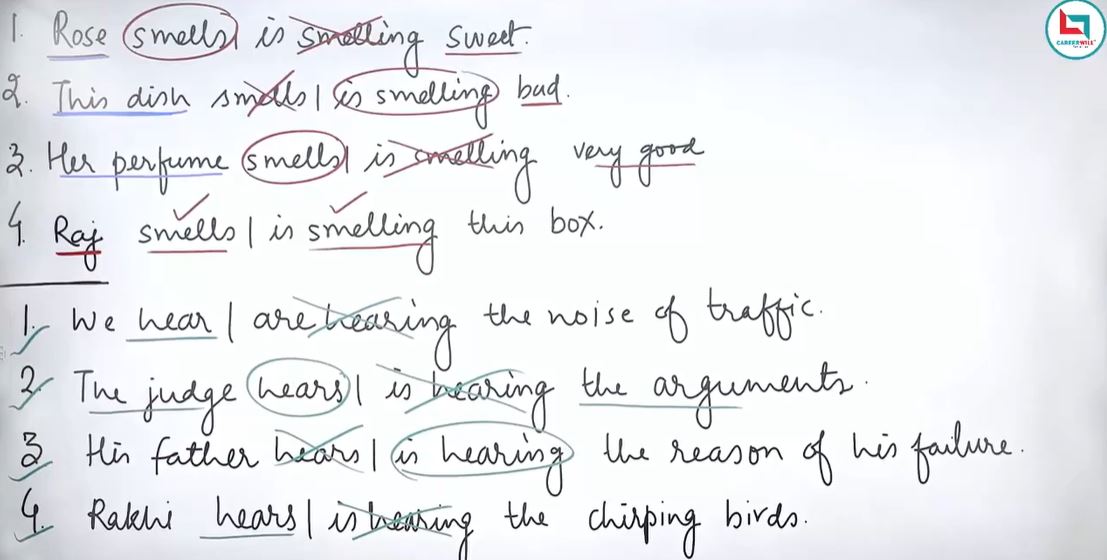 1. Rose smells is smelling sweet.
2. This dish smells | is smelling bad.
3. Her perfume smells | is smelling very good
4. Raj smells | is smelling this box.
1. We hear | are hearing the noise of traffic.
2. The judge hears | is hearing the arguments.
3 His father hears | is hearing the reason of his failure.
4. Rakhi hears | is hearing the chirping birds.
CAREERWILL